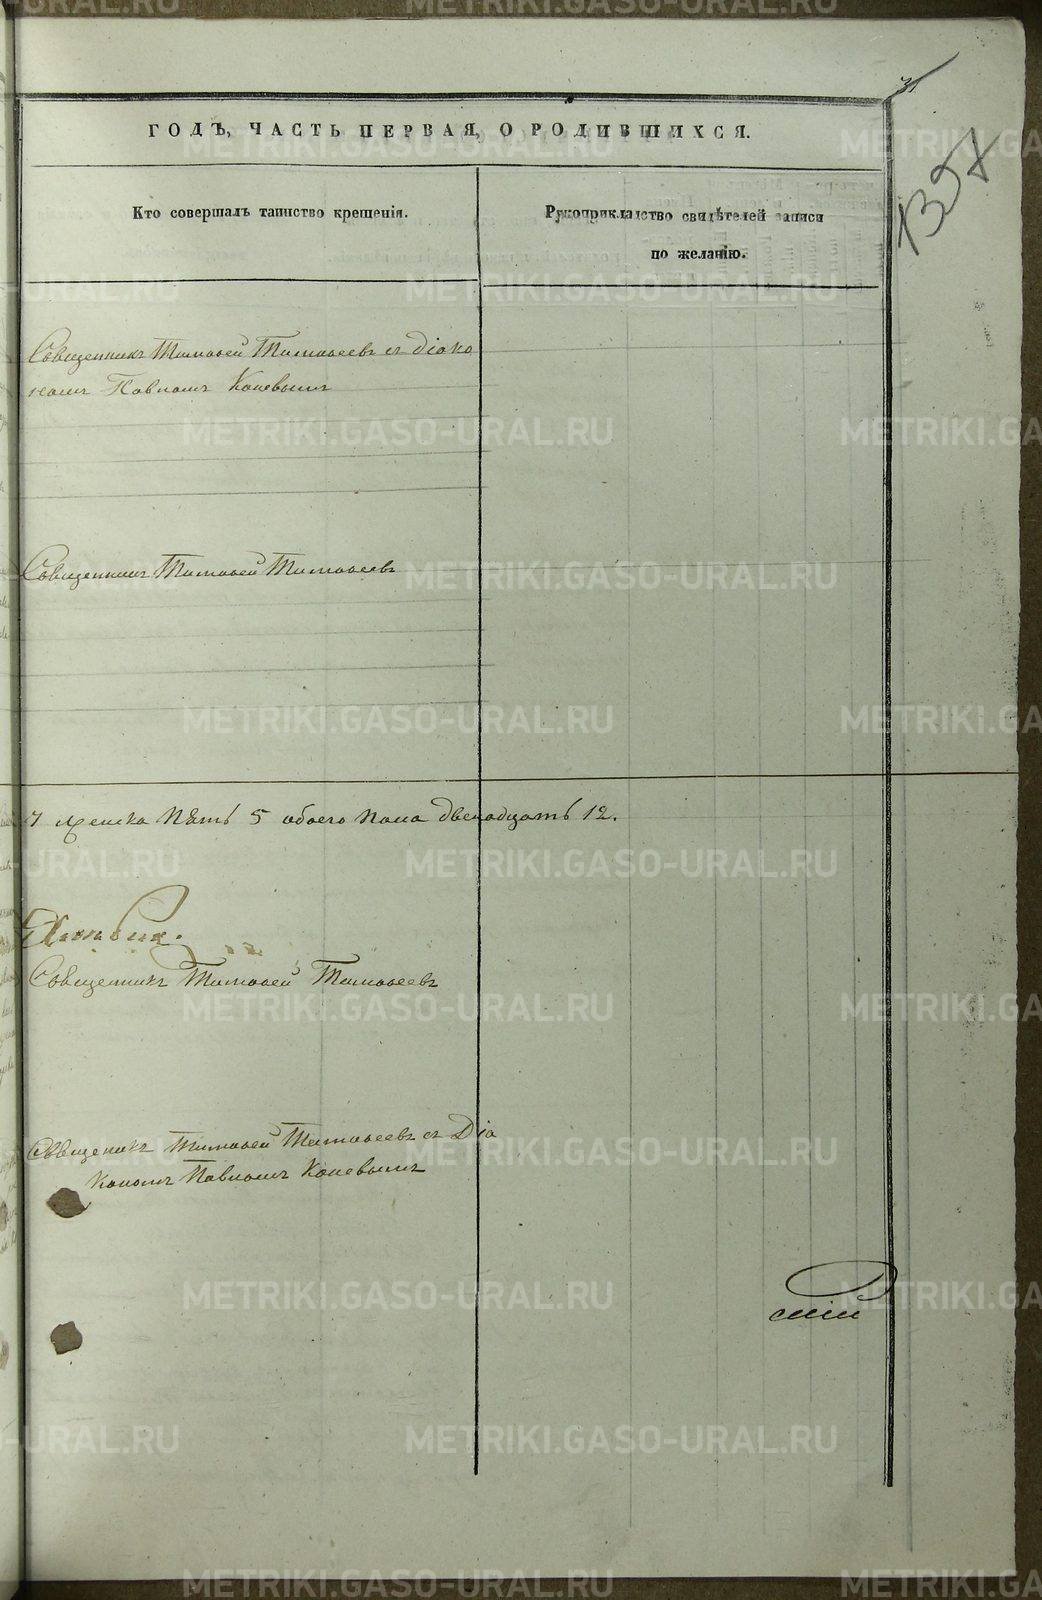 1397
ГОДЪ, ЧАСТЬ ПЕРВАЯ, О РОДИВШИХСЯ.
Кто совершалъ таинство крещенія.
Рукоприкладство свидѣтелей записи
по желанію.
Священникъ Тимоѳей Тимоѳеевъ съ діако
номъ Павломъ Коневымъ
Священникъ Тимоѳей Тимоѳеевъ
7 женска пять 5 обоего пола двенадцать 12.
Священникъ Тимоѳей Тимоѳеевъ
Священикъ Тимоѳей Тимоѳеевъ съ Діа
кономъ Павломъ Коневымъ
METRIKI.GASO-URAL.RU